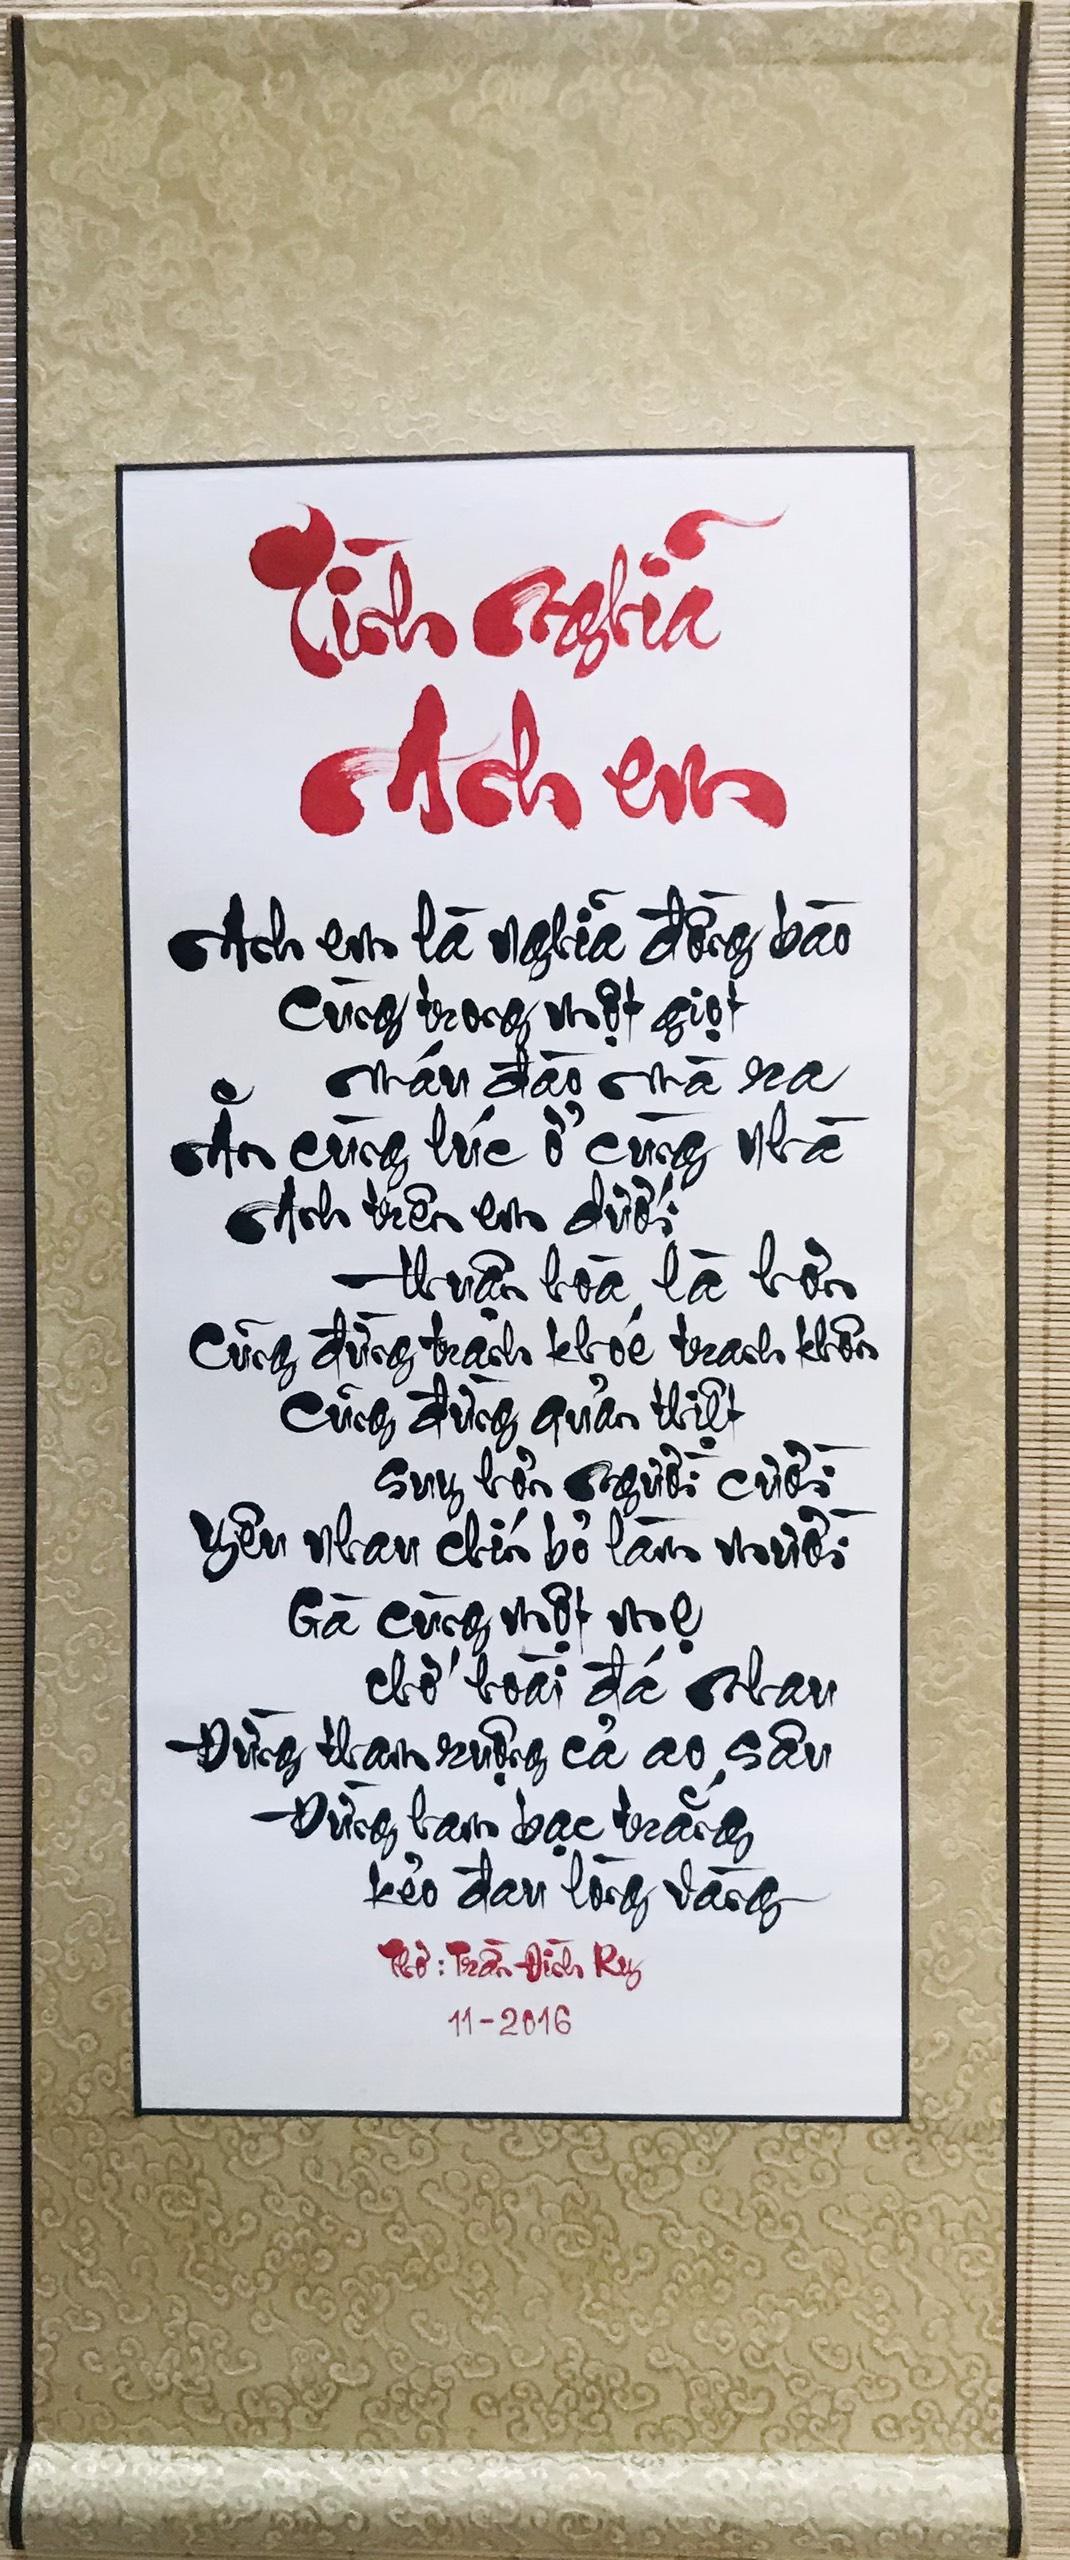 Tình nghĩa
Anh em
Anh em là nghĩa đồng bào
Cùng trong một giọt
máu đào mà ra
Ăn cùng lúc ở cùng nhà
Anh trên em dưới
thuận hoà là hơn
Cũng đừng tranh khoé tranh khôn
Cũng đừng quản thiệt
suy hơn người cười
Yêu nhau chín bỏ làm mười
Gà cùng một mẹ
chớ hoài đá nhau
Đừng tham ruộng cả ao sâu
Đừng ham bạc trắng
kẻo đau lòng vàng
Thơ: Trần Đình Ry
11-2016